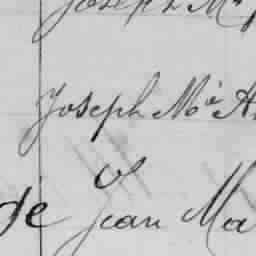 Joseph M
Joseph Mie A
de Jean Ma